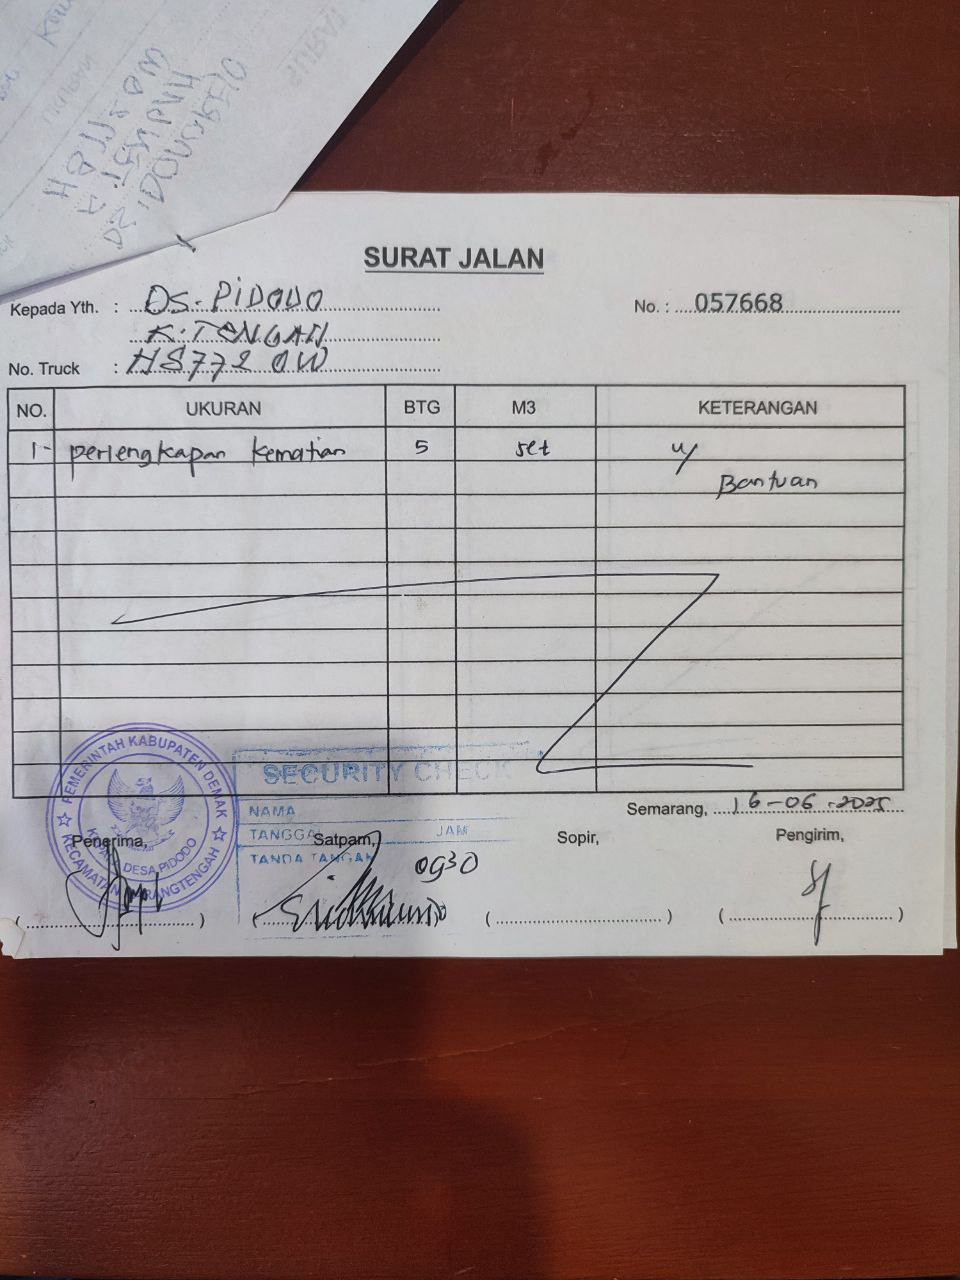 SURAT JALAN
Kepada Yth. : DS. PIDODO
No. : 057668
K. TENGAH
No. Truck : H8772 OW
NO. UKURAN BTG M3 KETERANGAN
1- perlengkapan kematian 5 set u/
Bantuan
PEMERINTAH KABUPATEN DEMAK
KEPALA DESA PIDODO
KECAMATAN KARANGTENGAH
SECURITY CHECK
NAMA
TANGGAL JAM
TANDA TANGAN
Semarang, 16-06-2025
Penerima, Satpam, Sopir, Pengirim,
0930